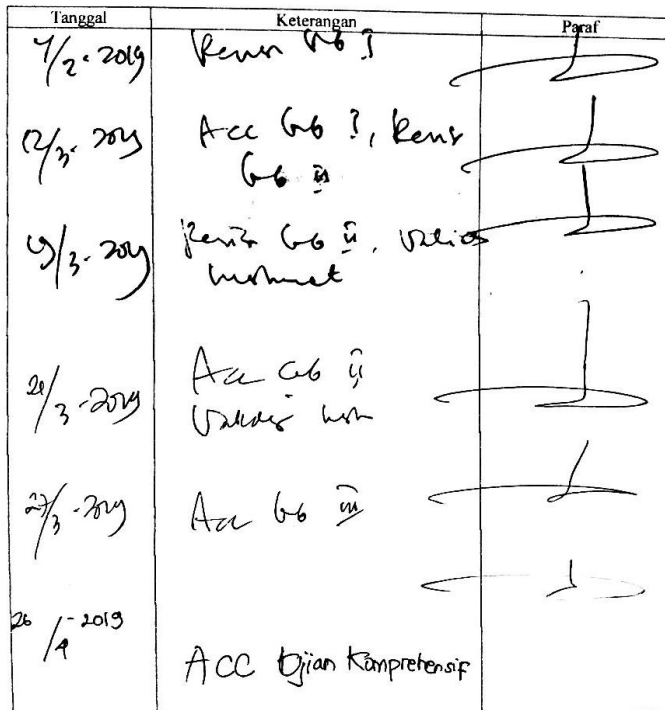 Tanggal Keterangan Paraf
/2-2019 Revisi Bab I
12/3-2019 Acc Bab I, Revisi
Bab II
19/3-2019 Revisi Bab II, Validasi
Instrumet
/3-2019 Acc Bab II
Validasi
27/3-2019 Acc Bab III
26/4-2019
ACC Ujian Komprehensif